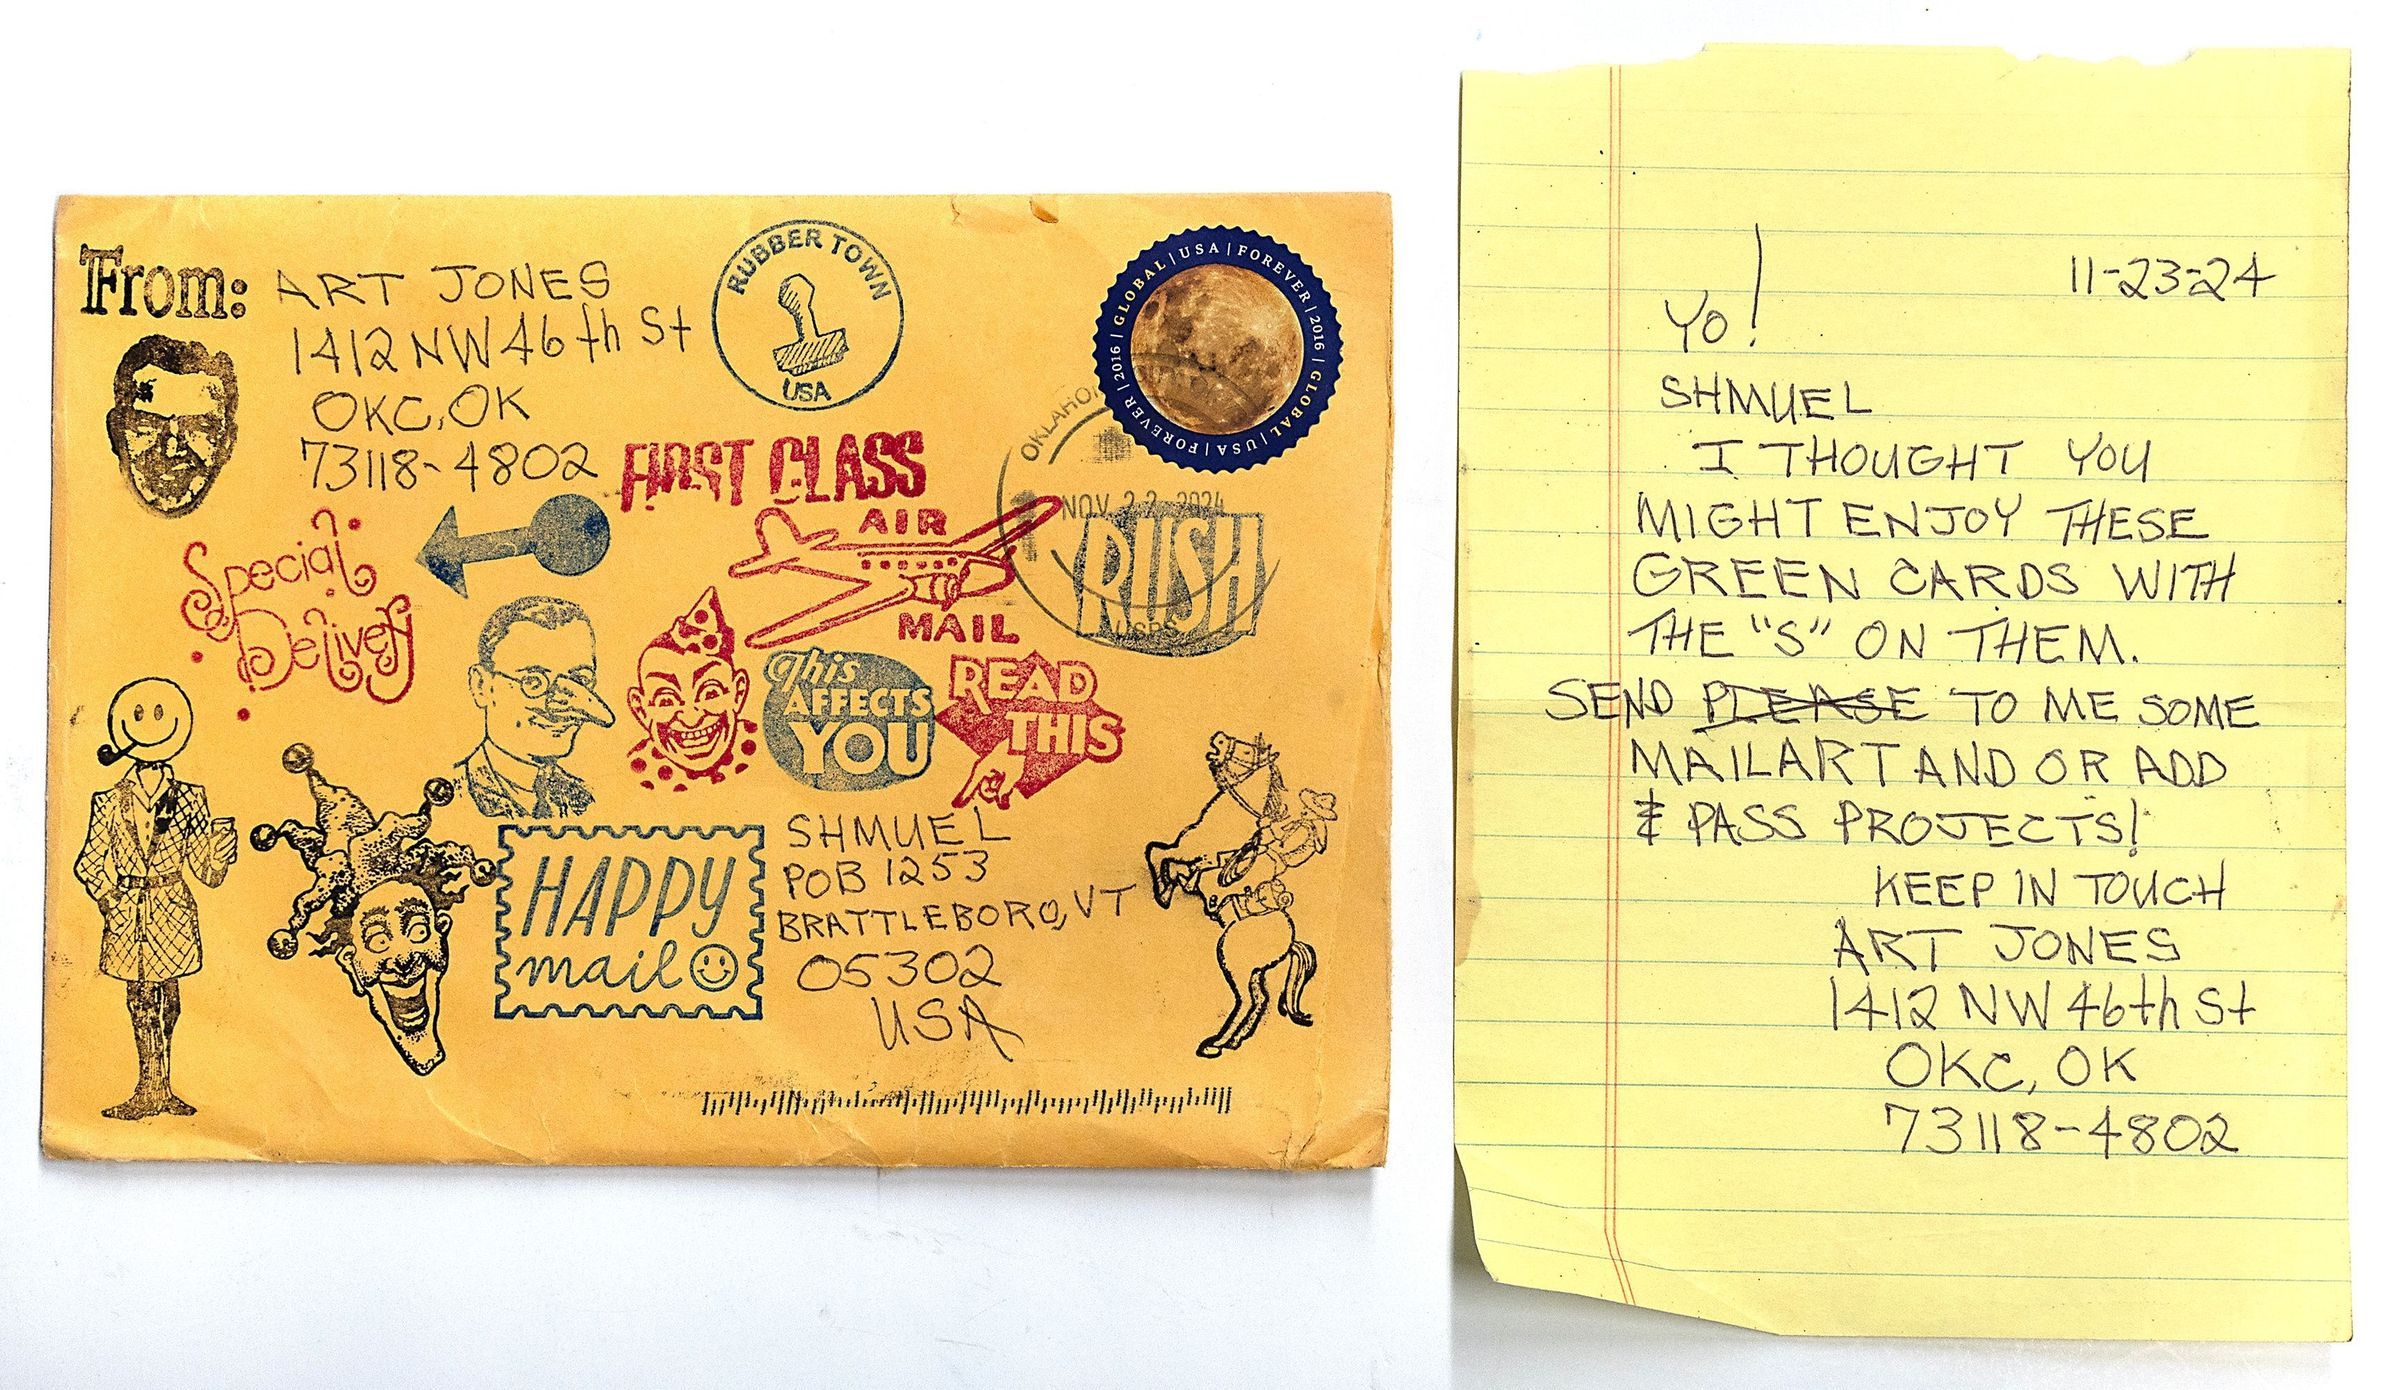 From: ART JONES
1412 NW 46th St
OKC, OK
73118-4802
RUBBER TOWN
USA
GLOBAL | USA | FOREVER | 2016 | GLOBAL | USA | FOREVER | 2016 |
FIRST CLASS
AIR
MAIL
NOV 22 2024
RUSH
USPS
Special
Delivery
This
AFFECTS
YOU
READ
THIS
HAPPY
mail
SHMUEL
POB 1253
BRATTLEBORO, VT
05302
USA
11-23-24
YO!
SHMUEL
I THOUGHT YOU
MIGHT ENJOY THESE
GREEN CARDS WITH
THE "S" ON THEM.
SEND PLEASE TO ME SOME
MAILART AND OR ADD
& PASS PROJECTS!
KEEP IN TOUCH
ART JONES
1412 NW 46th St
OKC, OK
73118-4802